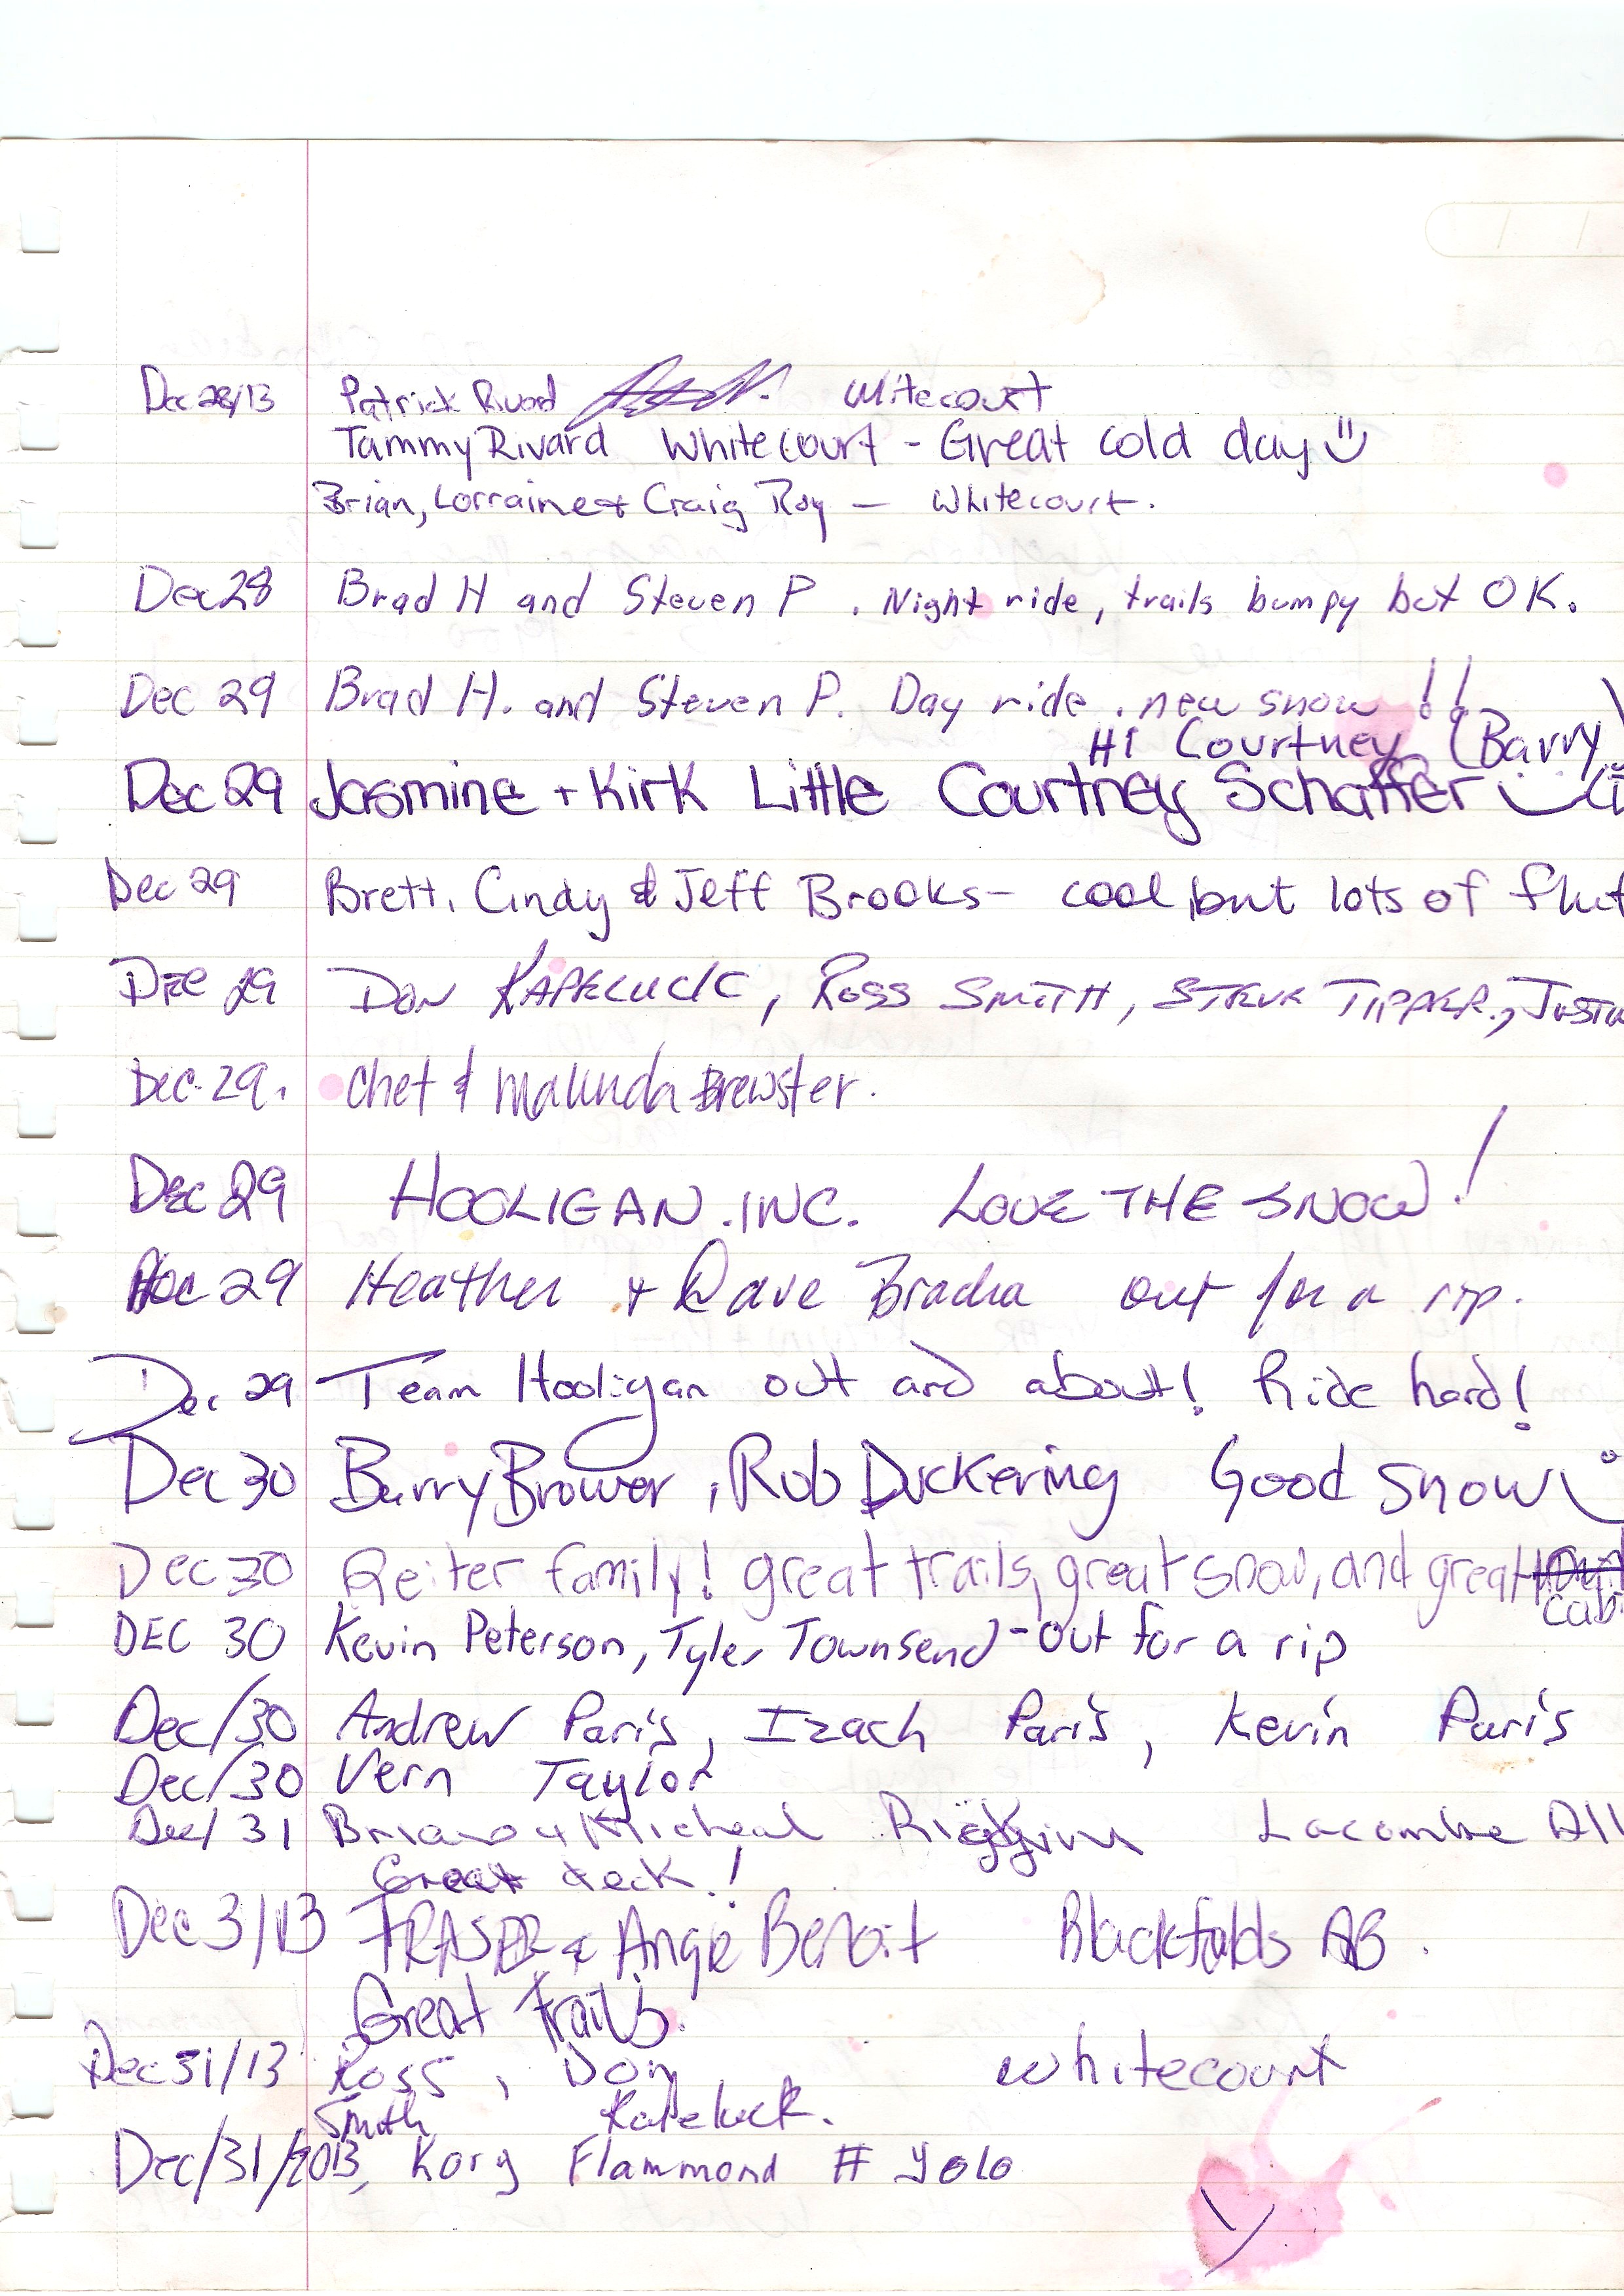 Dec 28/13 Patrick Ruad Witecourt
Tammy Rivard Whitecourt - Great cold day
Brian, Lorraine + Craig Roy — Whitecourt.
Dec 28 Brad H and Steven P. Night ride, trails bumpy but OK.
Dec 29 Brad H. and Steven P. Day ride. new snow!!
Hi Courtney (Barry)
Dec 29 Jasmine + Kirk Little Courtney Schaffer
Dec 29 Brett, Cindy & Jeff Brooks - cool, but lots of
Dec 29 DON KAPELUCK, ROSS SMITH, STEVE TIPPER,
Dec. 29. Chet & Malinda Brewster.
Dec 29 HOOLIGAN.INC. LOVE THE SNOW!
Dec 29 Heather + Dave out for a rip.
Dec 29 Team Hooligan out and about! Ride hard!
Dec 30 Barry Brower, Rob Duckering Good Snow
Dec 30 Reiter family! great trails, great snow, and great
cab
DEC 30 Kevin Peterson, Tyler Townsend - out for a rip
Dec/30 Andrew Paris, Izach Paris, Kevin Paris
Dec/30 Vern Taylor
Dec/31 Brian & Micheal Lacombe
Great deck!
Dec 31/13 FRASER & Angie Benoit Blackfalds AB.
Great Trails.
Dec 31/13 Ross, Don Whitecourt
Smith Kapeluck.
Dec/31/2013, Kory Flammond # yolo